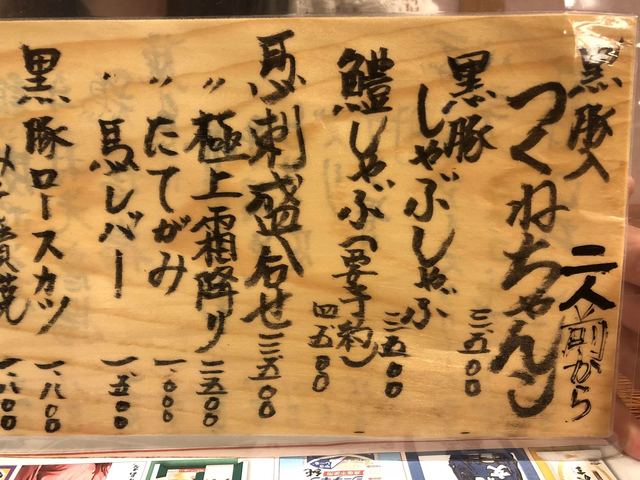 黒豚入
つくねちゃんこ
二人前から
三、五〇〇
黒豚
しゃぶしゃぶ
三、五〇〇
鱧しゃぶ(要予約)
四、五〇〇
馬刺盛合せ 三、五〇〇
〃極上霜降り 二、五〇〇
〃たてがみ 一、〇〇〇
〃馬レバー 一、五〇〇
黒豚ロースカツ 一、八〇〇
一、八〇〇